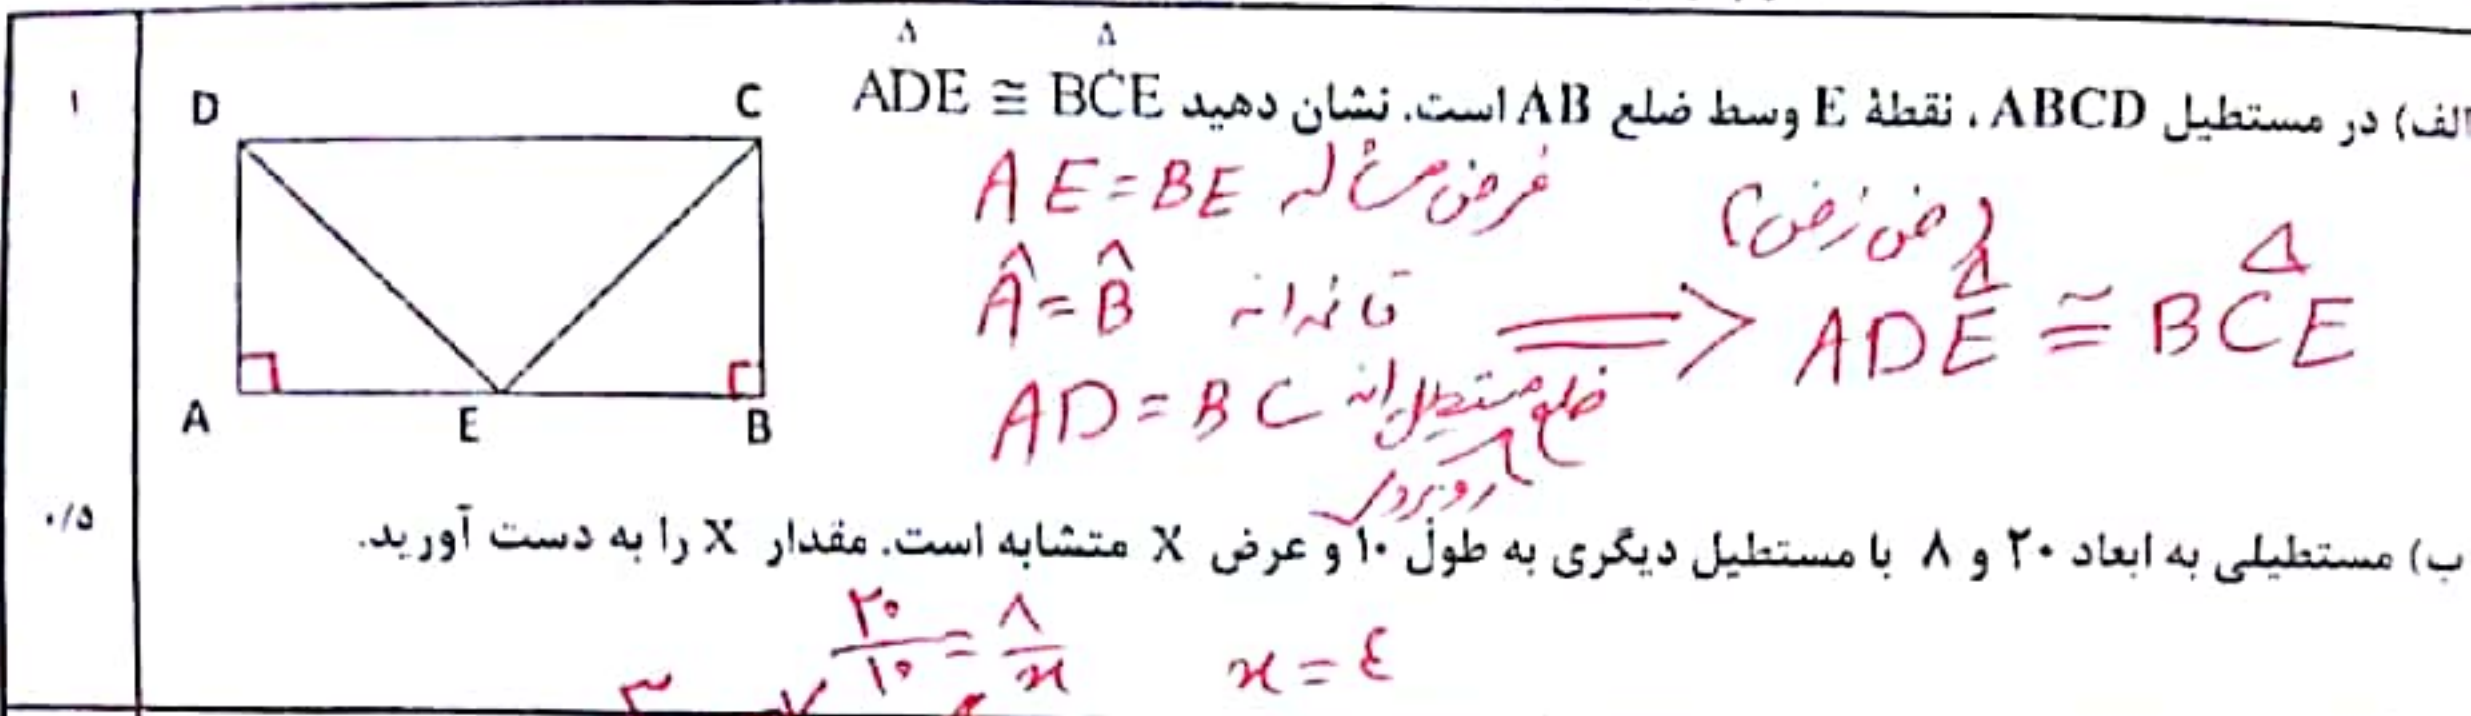 الف) در مستطیل ABCD ، نقطهٔ E وسط ضلع AB است. نشان دهید ADE ≅ BCE
۱
D C
AE = BE فرض مسئله
(ض ز ض)
Â = B̂ قائمه‌اند
⟹ ADE ≅ BCE
AD = BC ضلع مستطیل‌اند
روبروی
A E B
۰/۵
ب) مستطیلی به ابعاد ۲۰ و ۸ با مستطیل دیگری به طول ۱۰ و عرض X متشابه است. مقدار X را به دست آورید.
۲۰/۱۰ = ۸/x x = ٤